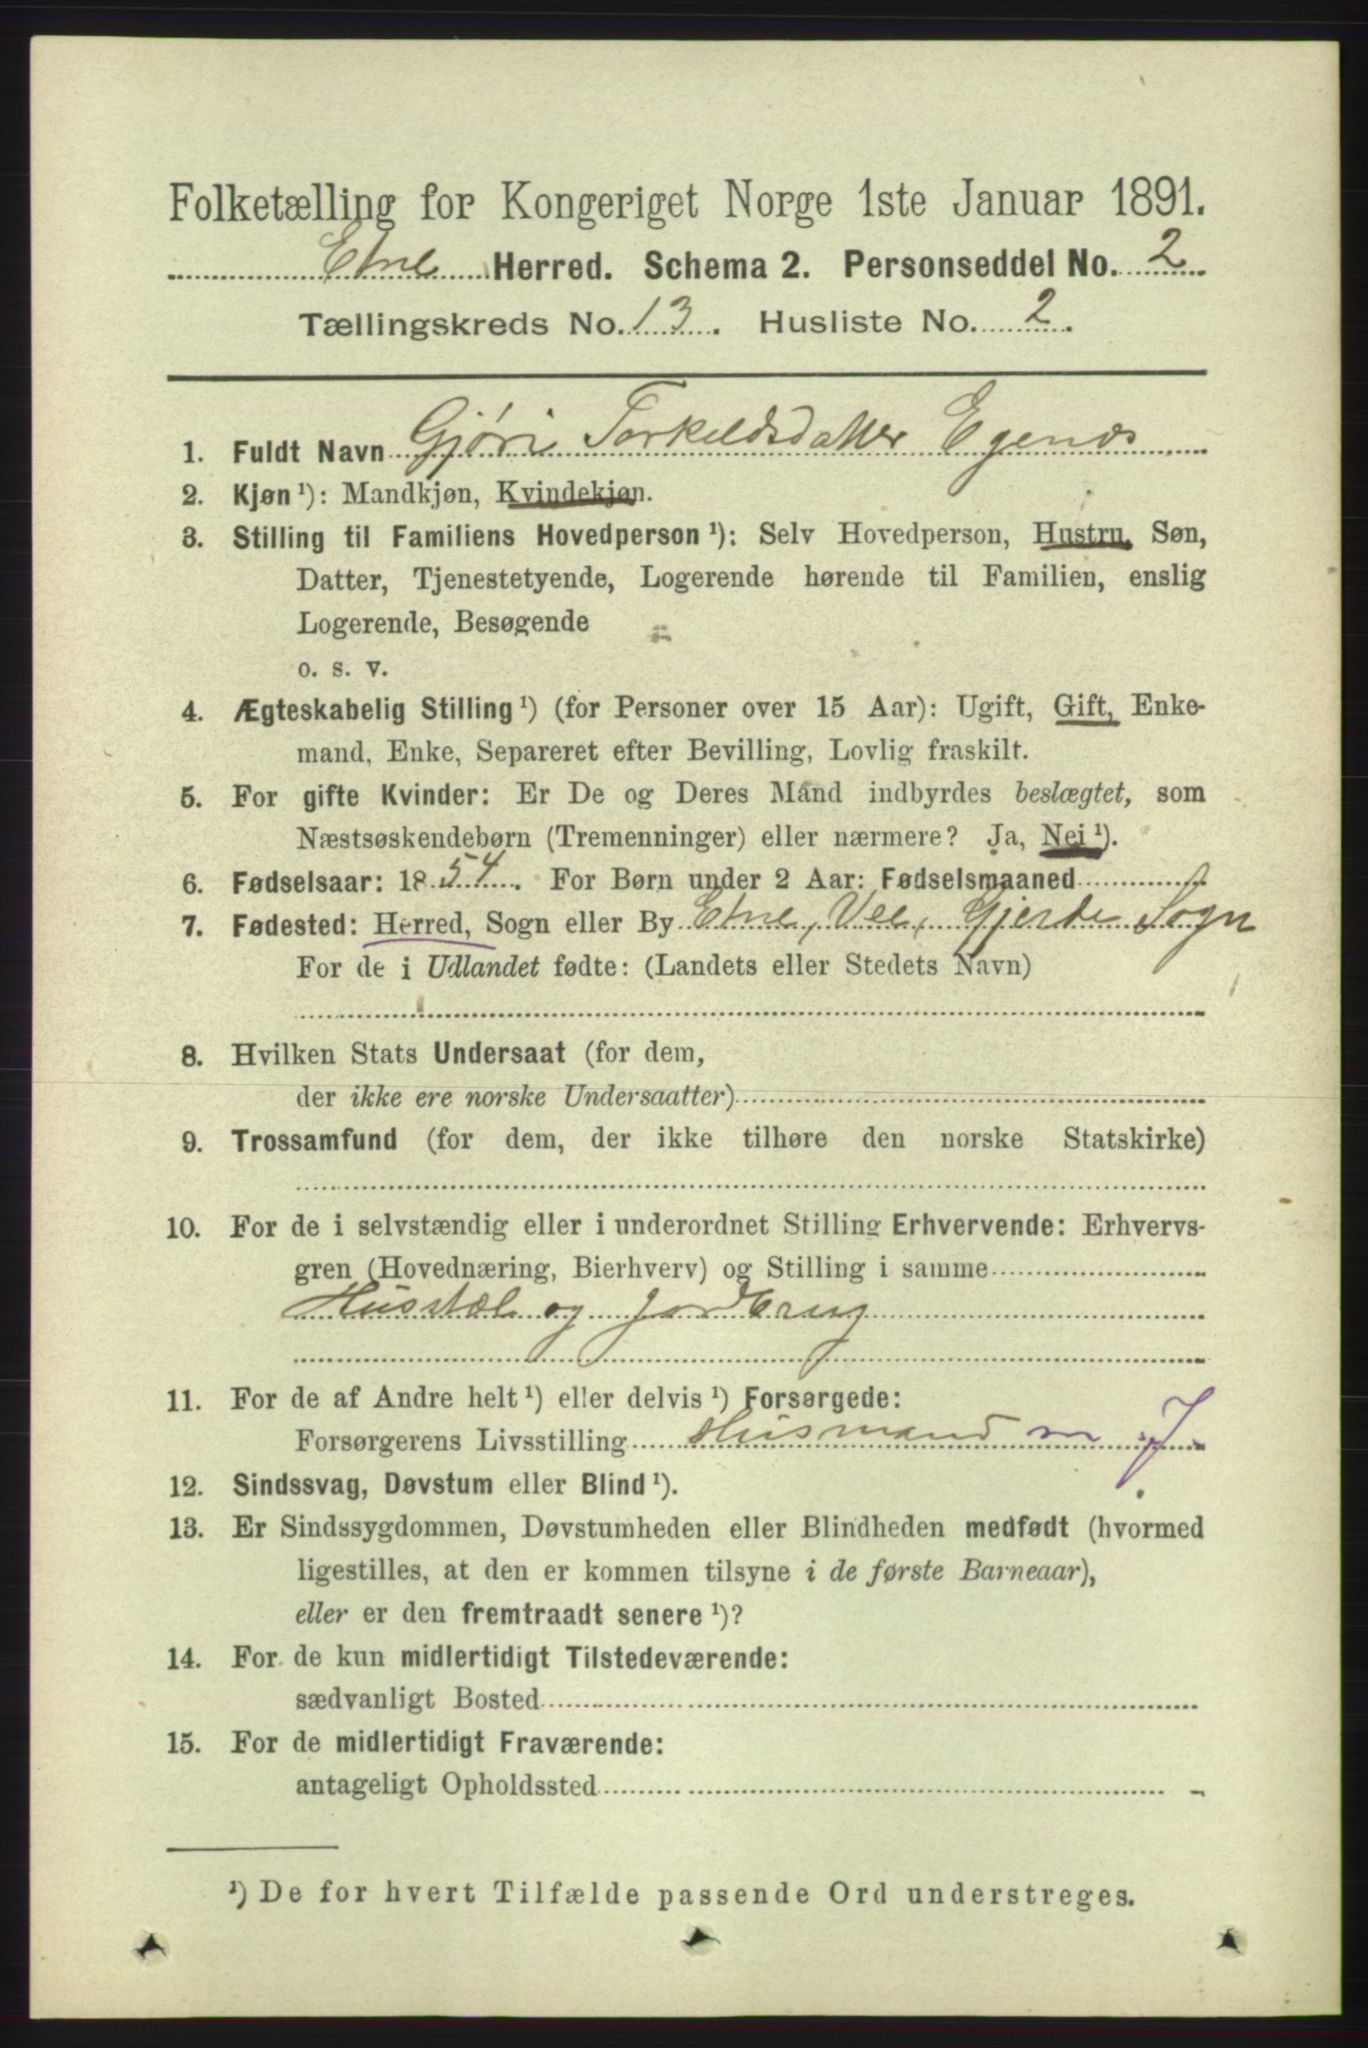 Folketælling for Kongeriget Norge 1ste Januar 1891.
Etne Herred. Schema 2. Personseddel No. 2
Tællingskreds No. 13. Husliste No. 2.
1. Fuldt Navn Gjøri Torkeldsdatter Egenæs
2. Kjøn ¹): Mandkjøn, Kvindekjøn.
3. Stilling til Familiens Hovedperson ¹): Selv Hovedperson, Hustru, Søn,
Datter, Tjenestetyende, Logerende hørende til Familien, enslig
Logerende, Besøgende
o. s. v.
4. Ægteskabelig Stilling ¹) (for Personer over 15 Aar): Ugift, Gift, Enke-
mand, Enke, Separeret efter Bevilling, Lovlig fraskilt.
5. For gifte Kvinder: Er De og Deres Mand indbyrdes beslægtet, som
Næstsøskendebørn (Tremenninger) eller nærmere? Ja, Nei ¹).
6. Fødselsaar: 1854. For Børn under 2 Aar: Fødselsmaaned
7. Fødested: Herred, Sogn eller By Etne, Vee, Gjerde Sogn
For de i Udlandet fødte: (Landets eller Stedets Navn)
8. Hvilken Stats Undersaat (for dem,
der ikke ere norske Undersaatter)
9. Trossamfund (for dem, der ikke tilhøre den norske Statskirke)
10. For de i selvstændig eller i underordnet Stilling Erhvervende: Erhvervs-
gren (Hovednæring, Bierhverv) og Stilling i samme
Husstæl og jordbrug
11. For de af Andre helt ¹) eller delvis ¹) Forsørgede:
Forsørgerens Livsstilling Husmand m J.
12. Sindssvag, Døvstum eller Blind ¹).
13. Er Sindssygdommen, Døvstumheden eller Blindheden medfødt (hvormed
ligestilles, at den er kommen tilsyne i de første Barneaar),
eller er den fremtraadt senere ¹)?
14. For de kun midlertidigt Tilstedeværende:
sædvanligt Bosted
15. For de midlertidigt Fraværende:
antageligt Opholdssted
¹) De for hvert Tilfælde passende Ord understreges.